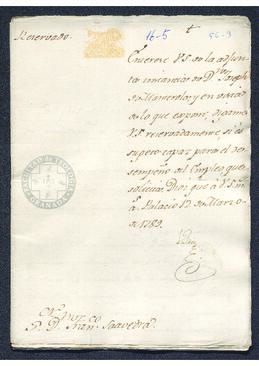 Reservado.
16-5
56-3
Enterese VS. de la adjun-
ta instancia de Dn. Joseph
de
y en vista
de lo que expone, digame
VS reservadamente, si es
sugeto capaz para el de-
sempeño del Empleo, que
solicita. Dios gue a VS. ms.
as. Palacio 12 de Marzo
de 1789.
FACULTAD DE TEOLOGIA
GRANADA
S. D. Fran. Saavedra.